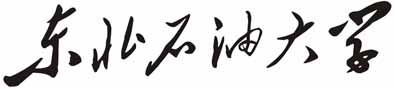 东北石油大学